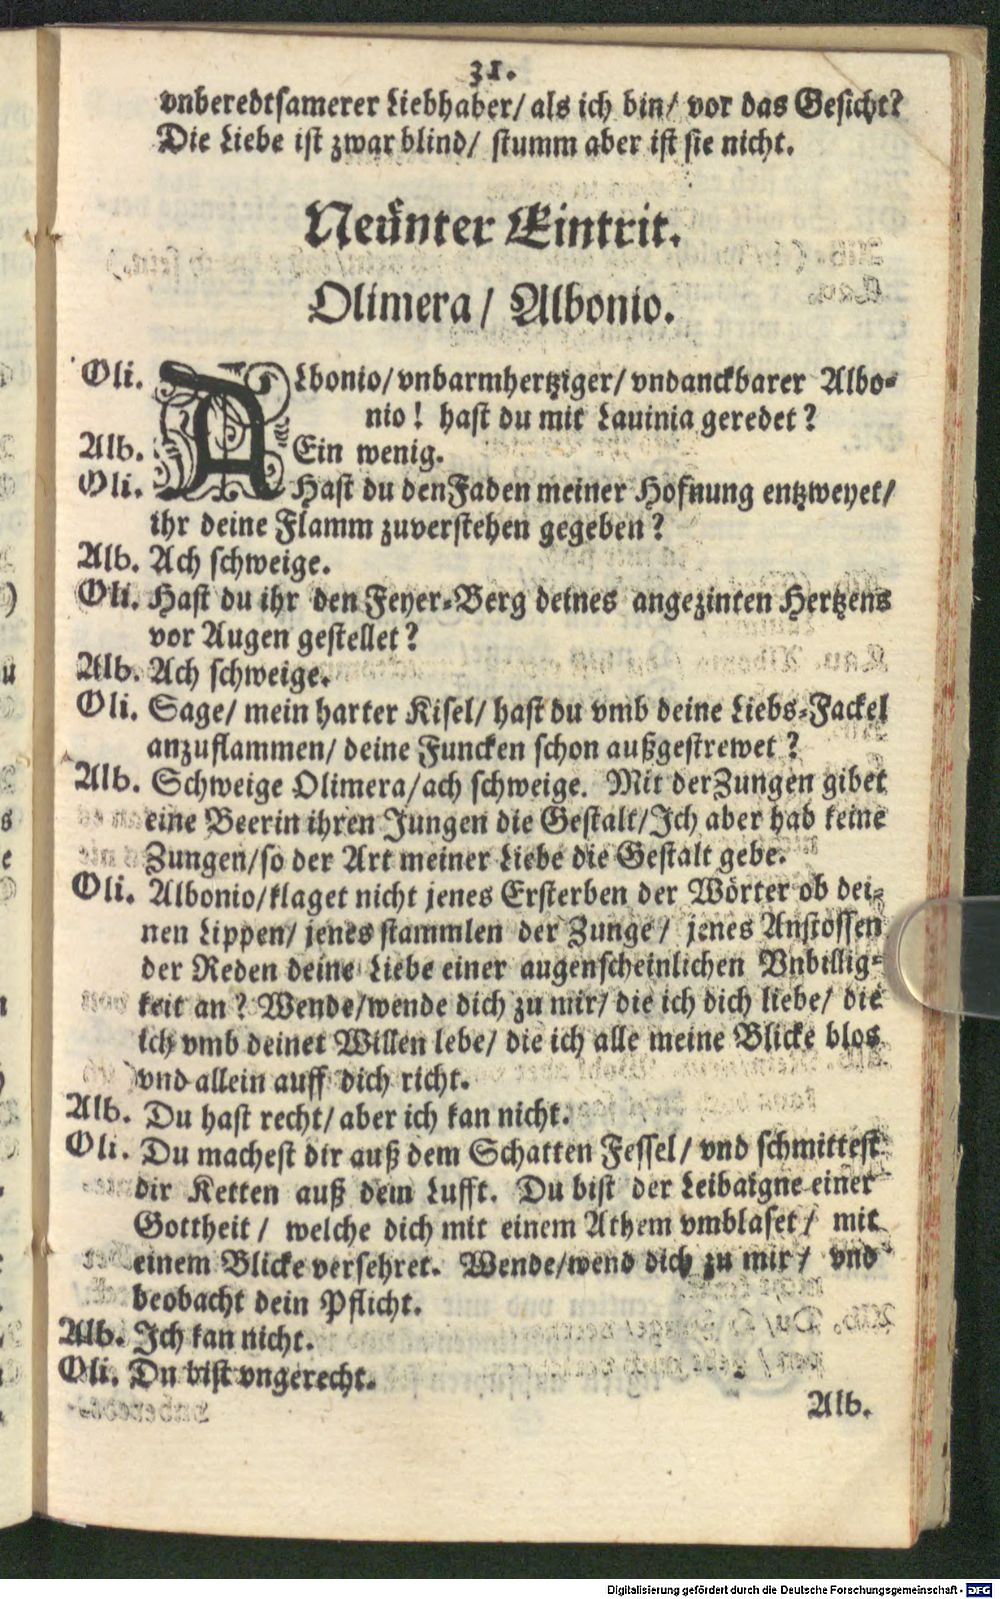 31.
vnberedtsamerer Liebhaber/ als ich bin/ vor das Gesicht?
Die Liebe ist zwar blind/ stumm aber ist sie nicht.
Neünter Eintrit.
Olimera/ Albonio.
Oli. ALbonio/ vnbarmhertziger/ vndanckbarer Albo-
nio! hast du mit Lauinia geredet?
Alb. Ein wenig.
Oli. Hast du den Faden meiner Hofnung entzweyet/
ihr deine Flamm zuverstehen gegeben?
Alb. Ach schweige.
Oli. Hast du ihr den Feyer-Berg deines angezinten Hertzens
vor Augen gestellet?
Alb. Ach schweige.
Oli. Sage/ mein harter Kisel/ hast du vmb deine Liebs-Fackel
anzuflammen/ deine Funcken schon außgestrewet?
Alb. Schweige Olimera/ach schweige. Mit der Zungen gibet
eine Beerin ihren Jungen die Gestalt/Ich aber hab keine
Zungen/so der Art meiner Liebe die Gestalt gebe.
Oli. Albonio/klaget nicht jenes Ersterben der Wörter ob dei-
nen Lippen/ jenes stammlen der Zunge/ jenes Anstossen
der Reden deine Liebe einer augenscheinlichen Vnbillig-
keit an? Wende/wende dich zu mir/ die ich dich liebe/ die
ich vmb deinet Willen lebe/ die ich alle meine Blicke blos
vnd allein auff dich richt.
Alb. Du hast recht/ aber ich kan nicht.
Oli. Du machest dir auß dem Schatten Fessel/ vnd schmittest
dir Ketten auß dem Lufft. Du bist der Leibaigne einer
Gottheit/ welche dich mit einem Athem vmblaset/ mit
einem Blicke versehret. Wende/wend dich zu mir/ vnd
beobacht dein Pflicht.
Alb. Ich kan nicht.
Oli. Du bist vngerecht.
Alb.
Digitalisierung gefördert durch die Deutsche Forschungsgemeinschaft - DFG